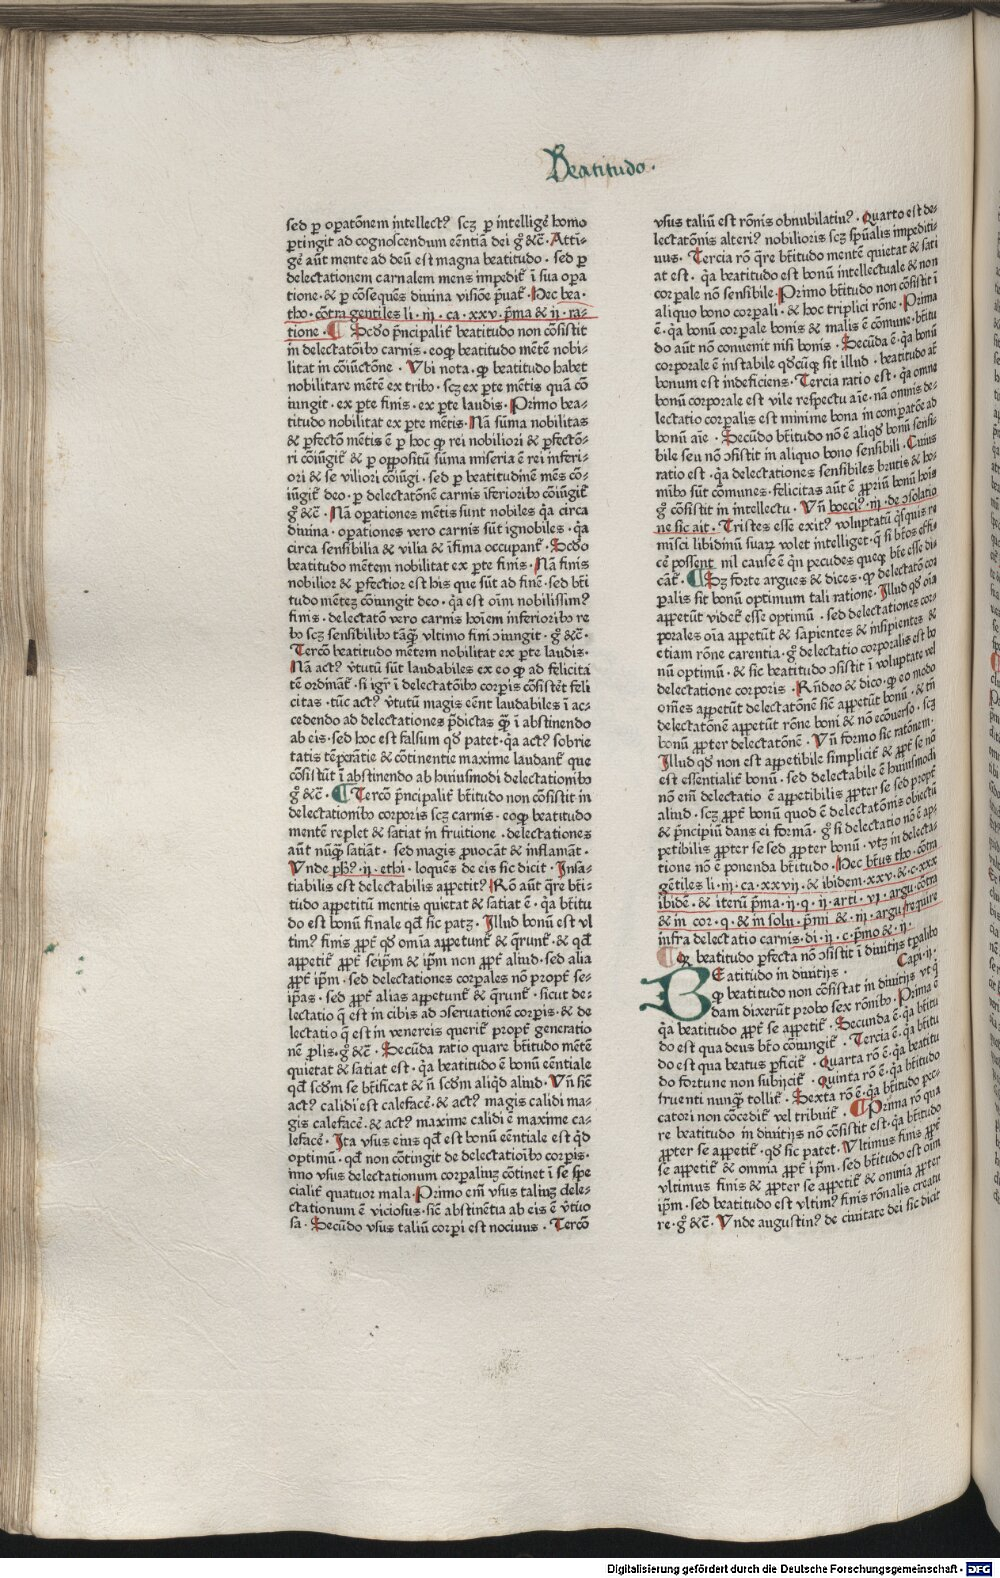 Beatitudo.
sed ꝑ oꝑatōnem intellectꝰ scꝫ ꝑ intelligē homo
ꝑtingit ad cognoscendum eēntiā dei gͦ &c̄ · Atti-
gē aūt mente ad deū est magna beatitudo · sed ꝑ
delectationem carnalem mens impedit̄ ī sua oꝑa
tione · & ꝑ cōsequēs diuina visiōe p̄uat̄ · Hec bea ·
tho · cōtra gentiles li · iij · ca · xxv · p̄ma & ij · ra-
tione · ¶ Scḋo p̄ncipalit̄ beatitudo non cōsistit
in delectatōibꝰ carnis · eoqꝫ beatitudo mētē nobi-
litat in cōiūctōne · Vbi nota · ꝙ beatitudo habet
nobilitare mētē ex tribꝰ · scꝫ ex ꝑte mētis quā cō
iungit · ex ꝑte finis · ex ꝑte laudis · Primo bea-
titudo nobilitat ex ꝑte mētis · Nā sūma nobilitas
& ꝑfectō mētis ē ꝑ hoc ꝙ rei nobiliori & ꝑfectō-
ri cōiūgit̄ & ꝑ oppositū sūma miseria ē rei inferi-
ori & se viliori cōiūgi · sed ꝑ beatitudinē mēs cō-
iūgit̄ deo · ꝑ delectatōnē carnis īferioribꝰ cōiūgit̄
gͦ &c̄ · Nā oꝑationes mētis sunt nobiles q̇a circa
diuina · oꝑationes vero carnis sūt ignobiles · q̇a
circa sensibilia & vilia & īfima occupant̄ · Scḋo
beatitudo mētem nobilitat ex ꝑte finis · Nā finis
nobilior & ꝑfectior est his que sūt ad finē · sed bt̄i
tudo mēteꝫ cōiungit deo · q̇a est oīm nobilissimꝰ
finis · delectatō vero carnis hoīem inferioribꝰ re
bꝰ scꝫ sensibilibꝰ tāq̄ꝫ vltimo fini ↄiungit · gͦ &c̄ ·
Tercō beatitudo mētem nobilitat ex ꝑte laudis ·
Nā actꝰ v̄tutū sūt laudabiles ex eo ꝙ ad felicita
tē ordināt̄ · si igr̄ ī delectatōibꝰ corꝑis cōsistēt feli
citas · tūc actꝰ v̄tutū magis eēnt laudabiles ī ac-
cedendo ad delectationes p̄dictas q̄ꝫ ī abstinendo
ab eis · sed hoc est falsum qḋ patet · q̇a actꝰ sobrie
tatis tēꝑātie & cōtinentie maxime laudant̄ que
cōsistūt ī abstinendo ab huiusmodi delectationibꝰ
gͦ &c̄ · ¶ Tercō p̄ncipalit̄ bt̄itudo non cōsistit in
delectationibꝰ corꝑis scꝫ carnis · eoqꝫ beatitudo
mentē replet & satiat in fruitione · delectationes
aūt nūq̄ꝫ satiāt · sed magis ꝓuocāt & inflamāt ·
Vnde ph̄ꝰ · ij · ethi · loquēs de eis sic dicit · Insa-
tiabilis est delectabilis appetitꝰ Rō aūt q̄re bt̄i-
tudo appetitū mentis quietat & satiat ē · q̇a bt̄itu
do est bonū finale qḋ sic patꝫ · Illud bonū est vl
timꝰ finis ꝓpt̄ qḋ omīa appetunt̄ & q̄runt̄ · & qḋ
appetit̄ ꝓpt̄ seip̄m & ip̄m non ꝓpt̄ aliud · sed alia
ꝓpt̄ ip̄m · sed delectationes corꝑales nō ꝓpt̄ se-
ip̄as · sed ꝓpt̄ alias appetunt̄ & q̄runt̄ · sicut de-
lectatio q̄ est in cibis ad ↄseruationē corꝑis · & de
lectatio q̄ est in venereis querit̄ ꝓpt̄ generatio
nē ꝓlis · gͦ &c̄ · Secūda ratio quare bt̄itudo mētē
quietat & satiat est · q̇a beatitudo ē bonū eēntiale
qḋ scḋm se bt̄ificat & n̄ scḋm aliq̇d aliud · Vn̄ sic̄
actꝰ calidi est calefacē · & actꝰ magis calidi ma-
gis calefacē · & actꝰ maxime calidi ē maxime ca-
lefacē · Ita vsus eius qḋ est bonū eēntiale est q̇d
optimū · qḋ non cōtingit de delectatioībꝰ corꝑis ·
īmo vsus delectationum corꝑaliuꝫ cōtinet ī se spe
cialit̄ quatuor mala · Primo em̄ vsus taliuꝫ dele-
ctationum ē viciosus · sic̄ abstinētia ab eis ē v̄tuo
sa · Secūdo vsus taliū corꝑi est nociuus · Tercō
vsus taliū est rōnis obnubilatiuꝰ · Quarto est de-
lectatōnis alteriꝰ nobilioris scꝫ spūalis impediti-
uus · Tercia rō q̄re bt̄itudo mentē quietat & sati
at est · q̇a beatitudo est bonū intellectuale & non
corꝑale nō sensibile · Primo bt̄itudo non cōsistit ī
aliquo bono corꝑali · & hoc triplici rōne · Prima
ē · q̇a bonū corꝑale bonis & malis ē cōmune · bt̄itu
do aūt nō conuenit nisi bonis · Secūda ē · q̇a bonū
corꝑale ē instabile qḋcūqꝫ sit illud · beatitudo at̄
bonum est indeficiens · Tercia ratio est · q̇a omne
bonū corꝑale est vile respectu aīe · nā omnis de-
lectatio corꝑalis est minime bona in comꝑatōe ad
bonū aīe · Secūdo bt̄itudo nō ē aliqḋ bonū sensi-
bile seu nō ↄsistit in aliquo bono sensibili · Cuius
ratio est · q̇a delectationes sensibiles brutis & ho-
mībꝰ sūt cōmunes · felicitas aūt ē ꝓpriū bonū hoīs
gͦ cōsistit in intellectu · Vn̄ boeciꝰ · iij · de ↄsolatio
ne sic ait · Tristes esse exitꝰ voluptatū q̇squis re
misci libidinū suaꝝ volet intelliget · q̄ si bt̄os effi-
cē possent nil cause ē q̇n pecudes queqꝫ bt̄e esse di
cāt̄ · ¶ Sꝫ forte argues & dices · ꝙ delectatō cor
ꝑalis sit bonū optimum tali ratione · Illud qḋ oīa
appetūt videt̄ esse optimū · sed delectationes cor-
ꝑorales oīa appetūt & sapientes & insipientes &
etiam rōne carentia · gͦ delectatio corꝑalis est bo
nū optimū · & sic beatitudo ↄsistit ī voluptate vel
delectatione corꝑoris · Rn̄deo & dico · ꝙ eo modo
om̄es appetūt delectatōnē sic̄ appetūt bonū · & tn̄
delectatōnē appetūt rōne boni & nō ecōuerso · scꝫ
bonū ꝓpter delectatōnē · Vn̄ formo sic ratōnem ·
Illud qḋ non est appetibile simplicit̄ & ꝓpt̄ se nō
est essentialit̄ bonū · sed delectabile ē huiusmodi
nō em̄ delectatio ē appetibilis ꝓpter se sed ꝓpt̄
aliud · scꝫ ꝓpt̄ bonū quod ē delectatōnis obiectū
& p̄ncipiū dans ei formā · gͦ si delectatio nō ē ap-
petibilis ꝓpter se sed ꝓpter bonū · vtꝫ in delecta-
tione nō ē ponenda bt̄itudo · Hec bt̄us tho · cōtra
gētiles li · iij · ca · xxvij · & ibidem · xxv · & · c · xxx
ibidē · & iterū p̄ma · ij · q · ij · arti · vi · argu · cōtra
& in cor · q · & in solu · p̄mi & · iij · argu · require
infra delectatio carnis · di · ij · c · p̄mo & · ij ·
¶ Qꝫ beatitudo ꝑfecta nō ↄsistit ī diuitijs tꝑalibꝰ
BEatitudo in diuitijs · Capi · ij ·
ꝙ beatitudo non cōsistat in diuitijs vt q̇
dam dixerūt probo sex rōnibꝰ · Prima ē
q̇a beatitudo ꝓpt̄ se appetit̄ · Secunda ē · q̇a bt̄itu
do est qua deus bt̄o cōiungit̄ · Tercia ē · q̇a bt̄itu
do est qua beatus ꝑficit̄ · Quarta rō ē · q̇a beatitu
do fortune non subijcit̄ · Quinta rō ē · q̇a bt̄itudo
fruenti nunq̄ꝫ tollit̄ · Sexta rō ē · q̇a bt̄itudo pec-
catori non cōcedit̄ vel tribuit̄ · ¶ Prima rō qua
re beatitudo in diuitijs nō cōsistit est · q̇a bt̄itudo
ꝓpter se appetit̄ · qḋ sic patet · Vltimus finis ꝓpt̄
se appetit̄ & omnia ꝓpt̄ ip̄m · sed bt̄itudo est oīm
vltimus finis & ꝓpter se appetit̄ & omnia ꝓpter
ip̄m · sed beatitudo est vltimꝰ finis rōnalis creatu
re · gͦ &c̄ · Vnde augustinꝰ de ciuitate dei sic dicit
Digitalisierung gefördert durch die Deutsche Forschungsgemeinschaft - DFG